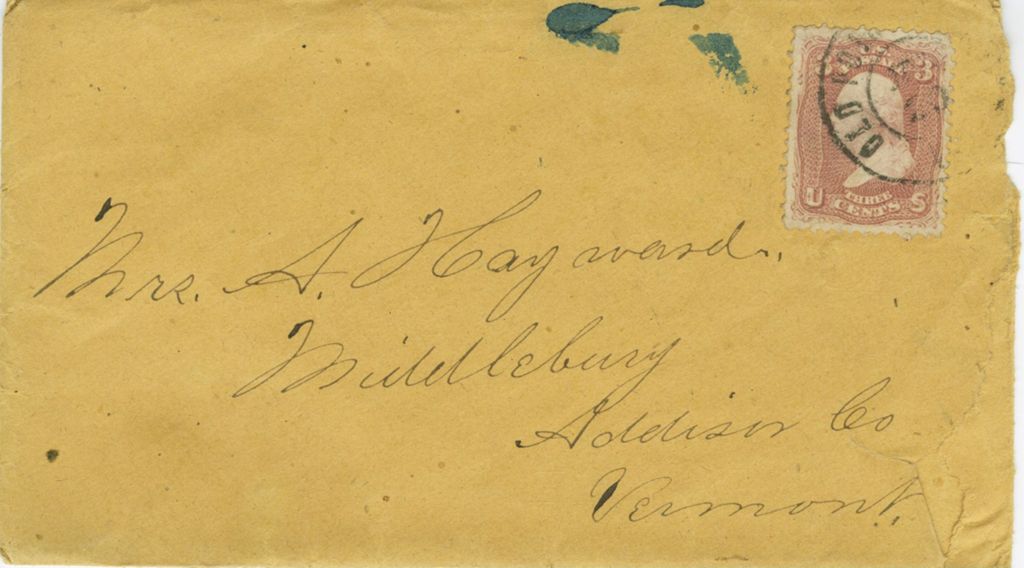 Mrs. A. Hayward.
Middlebury
Addison Co
Vermont.
3 3
U S
THREE
CENTS
OLD